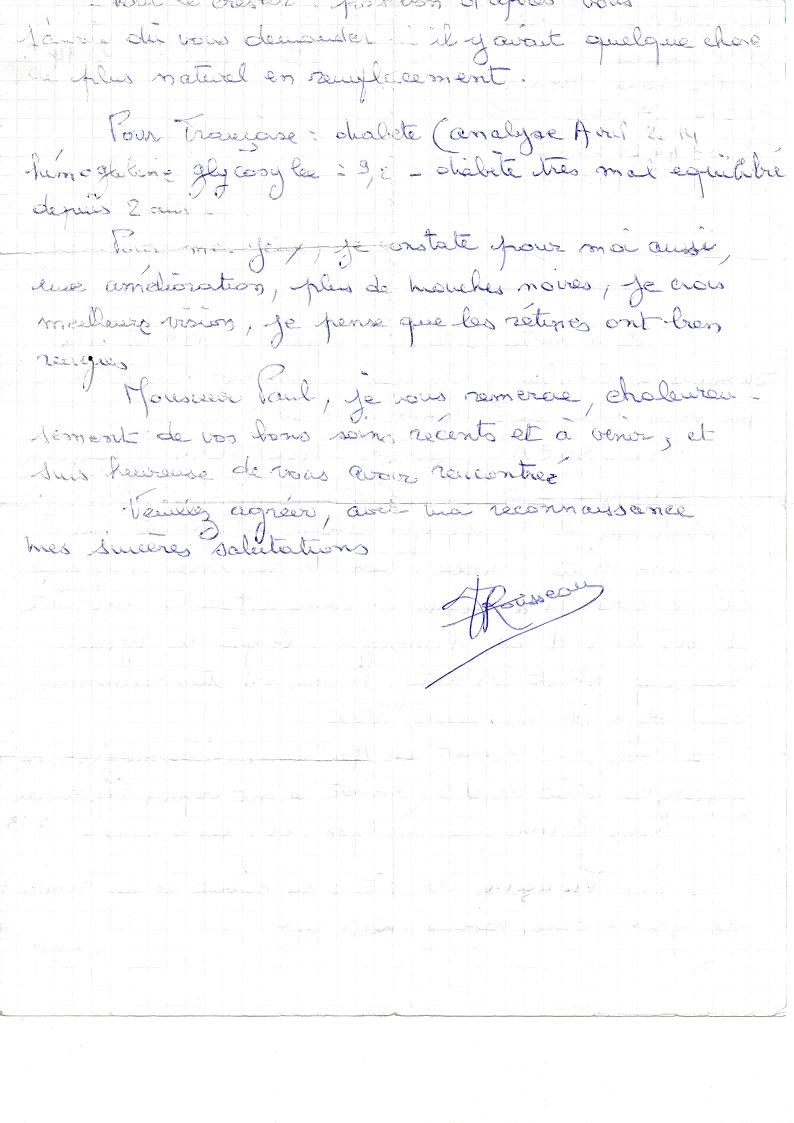 vous
dû vous demander il y avait quelque chose
plus naturel en remplacement.
Pour Françoise : diabète (analyse Avril
hémoglobine glycosylée = 9,2 - diabète très mal équilibré
depuis 2 ans -
Pour mes yeux, je constate pour moi aussi,
une amélioration, plus de mouches noires, je crois
meilleure vision, je pense que les rétines ont bien
réagies
Monsieur Paul, je vous remercie, chaleureu-
sement de vos bons soins récents et à venir, et
suis heureuse de vous avoir rencontré
Veuillez agréer, avec ma reconnaissance
mes sincères salutations
Rousseau